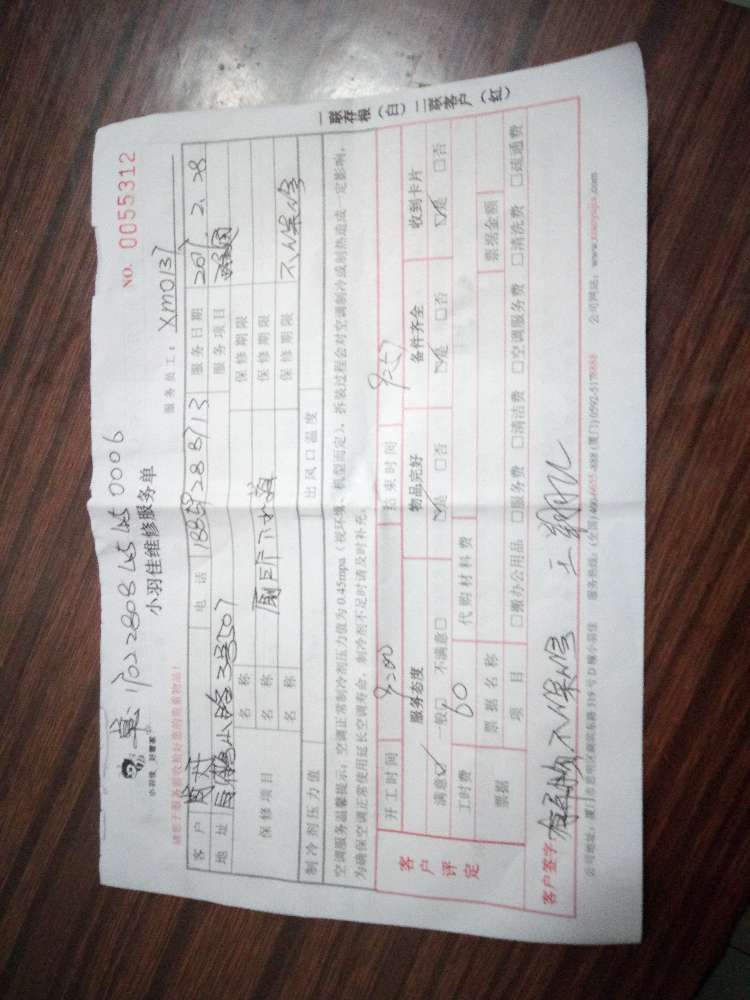 单 1702280845450006
NO. 0055312
小羽佳维修服务单
服务员工: XM0137
请您于服务前收捡好您的贵重物品!
客户 电话 服务日期 2017.2.28
地址 服务项目
保修项目 名称 厕所门 保修期限
名称 保修期限
名称 保修期限 不保修
制冷剂压力值 出风口温度
空调服务温馨提示: 空调正常制冷剂压力值为0.45mpa (视环境、机型而定), 拆装过程会对空调制冷或制热造成一定影响,
为确保空调正常使用延长空调寿命, 制冷剂不足时请及时补充。
一联存根(白) 二联客户(红)
客户评定
开工时间 9:00 结束时间 9:57
服务态度 物品完好 备件齐全 收到卡片
满意☑ 一般□ 不满意□ ☑是 □否 ☑是 □否 ☑是 □否
工时费 60 代购材料费
票据 票据名称 票据金额
项目 □搬办公用品 □服务费 □清洁费 □空调服务费 □清洗费 □疏通费
客户签字: 不保修
公司地址: 厦门市思明区 319号D幢小羽佳 服务热线: (全国)400-4655-888 (厦门)0592-5178888 公司网站: www.xiaoyujia.com